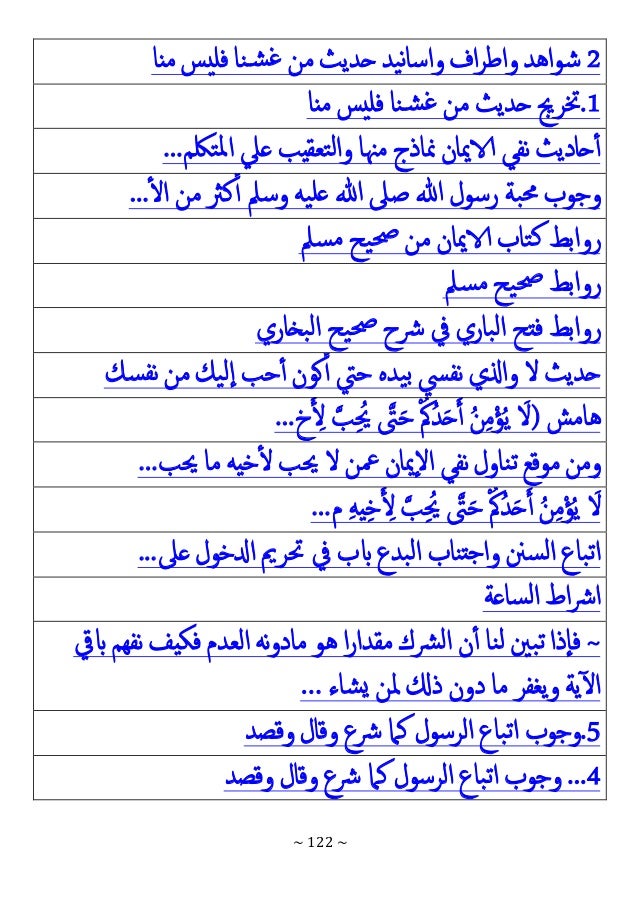 2 شواهد واطراف واسانيد حديث من غشنا فليس منا
1.تخريج حديث من غشنا فليس منا
أحاديث نفي الايمان نماذج منها والتعقيب علي المتكلم...
وجوب محبة رسول الله صلى الله عليه وسلم أكثر من الأ...
روابط كتاب الايمان من صحيح مسلم
روابط صحيح مسلم
روابط فتح الباري في شرح صحيح البخاري
حديث لا والذي نفسي بيده حتي أكون أحب إليك من نفسك
هامش (لَا يُؤْمِنُ أَحَدُكُمْ حَتَّى يُحِبَّ لِأَخ...
ومن موقع تناول نفي الإيمان عمن لا يحب لأخيه ما يحب...
لَا يُؤْمِنُ أَحَدُكُمْ حَتَّى يُحِبَّ لِأَخِيهِ م...
اتباع السنن واجتناب البدع باب في تحريم الدخول على...
اشراط الساعة
~ فإذا تبين لنا أن الشرك مقدارا هو مادونه العدم فكيف نفهم باقي
الآية ويغفر ما دون ذلك لمن يشاء ...
5.وجوب اتباع الرسول كما شرع وقال وقصد
4... وجوب اتباع الرسول كما شرع وقال وقصد
~ 122 ~